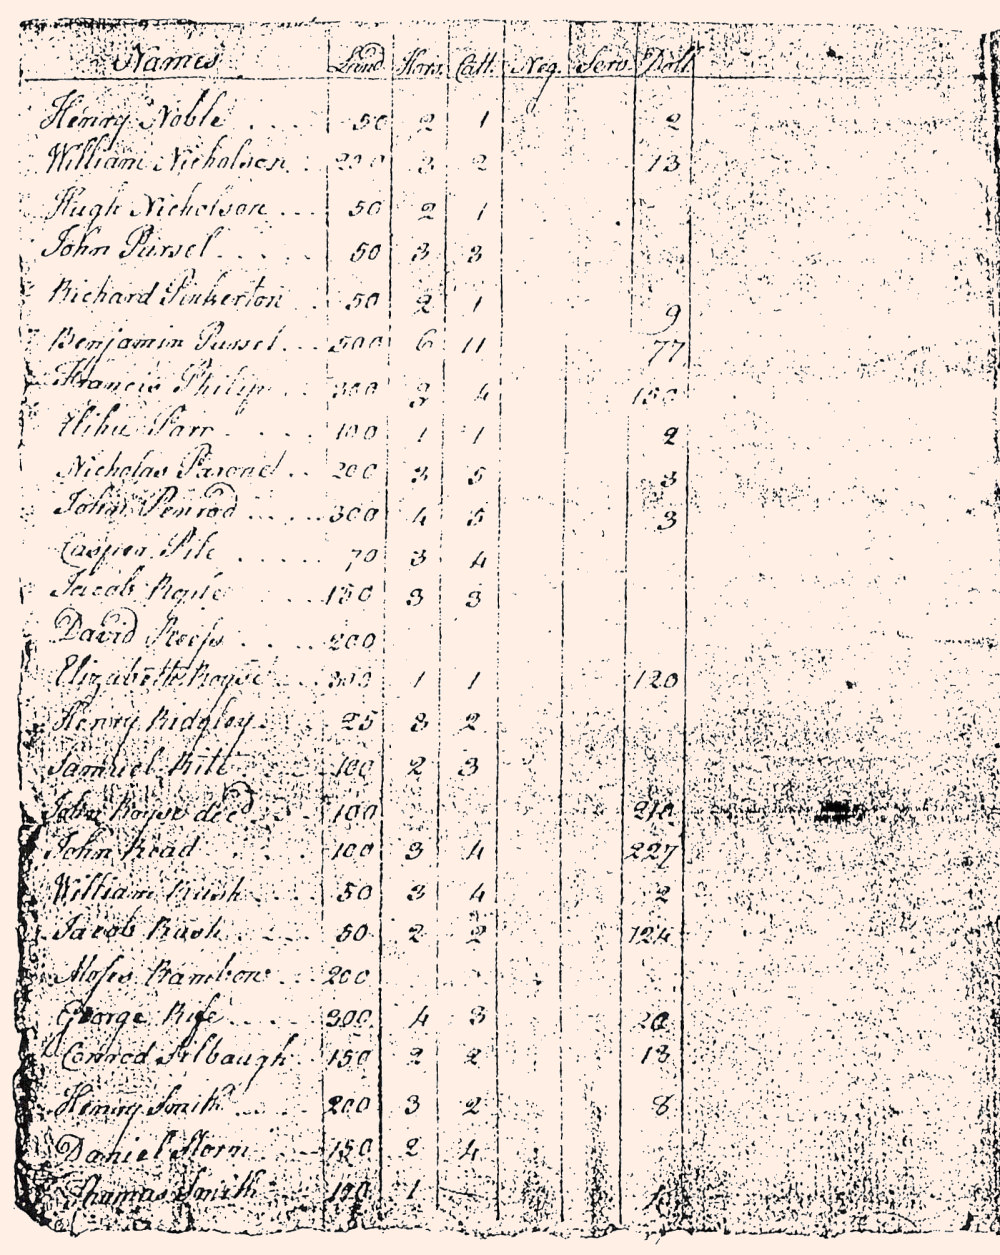 Names Land Hors. Catt. Neg. Serv. Doll
Henry Noble .... 50 2 1 2
William Nicholson .. 200 3 2 13
Hugh Nicholson ... 50 2 1
John Pursel ..... 50 3 3
Richard Pinkerton . 50 2 1 9
Benjamin Pursel ... 500 6 11 77
Francis Philip ... 300 3 4 150
Elihu Parr .... 100 1 1 2
Nicholas .. 200 3 5 3
John Penrod .... 300 4 5 3
Casper Pile ..... 70 3 4
Jacob .. 150 3 3
David .... 200
Elizabeth Royse ... 300 1 1 120
Henry Ridgley .. 25 3 2
Samuel .. 100 2 3
John Royse decd .. 100 210
John Read .... 100 3 4 227
William Rush .... 50 3 4 2
Jacob Rush .... 50 2 2 124
Moses Rambow ... 200
George Rife .... 300 4 3
Conrod Silbaugh . 150 2 2 13
Henry Smith .... 200 3 2 8
Daniel Storm ... 150 2 4
Thomas Smith .. 1